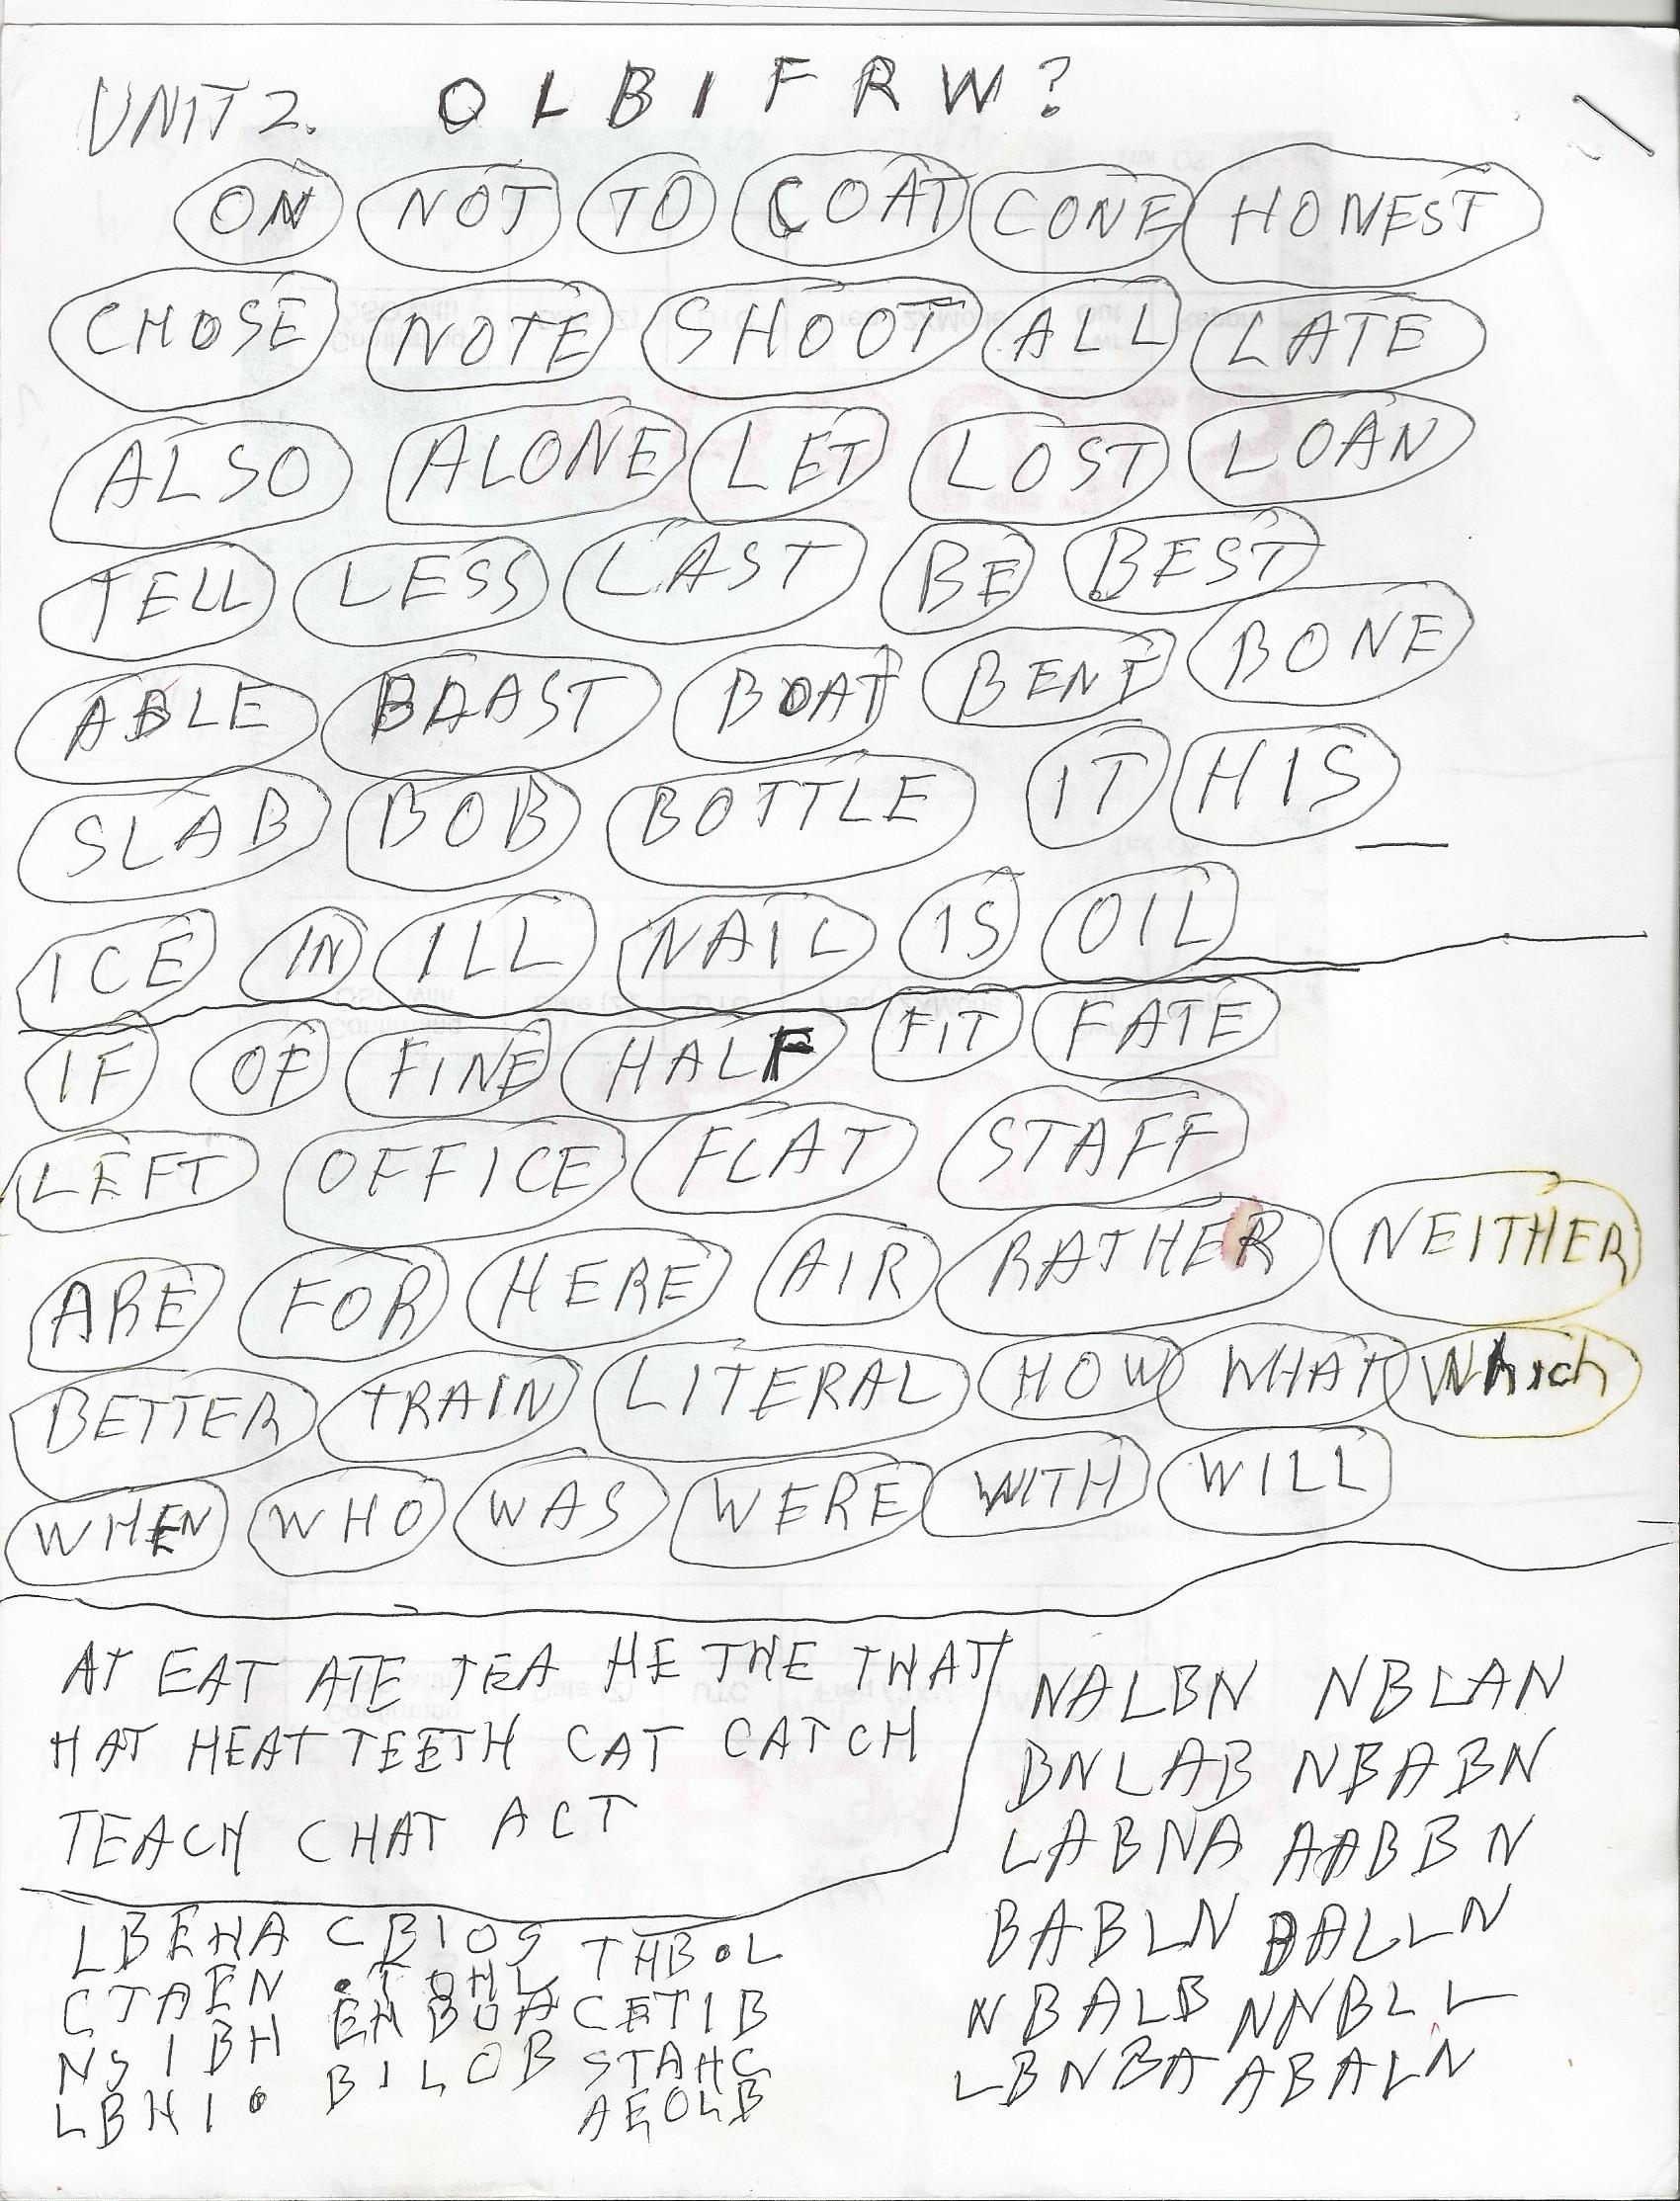 UNIT 2. O L B I F R W ?
ON NOT TO COAT CONE HONEST
CHOSE NOTE SHOOT ALL LATE
ALSO ALONE LET LOST LOAN
TELL LESS LAST BE BEST
ABLE BLAST BOAT BENT BONE
SLAB BOB BOTTLE IT HIS
ICE IN ILL NAIL IS OIL
IF OF FINE HALF FIT FATE
LEFT OFFICE FLAT STAFF
ARE FOR HERE AIR RATHER NEITHER
BETTER TRAIN LITERAL HOW WHAT Which
WHEN WHO WAS WERE WITH WILL
AT EAT ATE TEA HE THE THAT
HAT HEAT TEETH CAT CATCH
TEACH CHAT ACT
NALBN NBLAN
BNLAB NBABN
LABNA AABBN
BABLN BALLN
NBALB NNBLL
LBNBA ABALN
LBEHA CBIOS THB•L
CTAEN
EHBOA CETIB
NSIBH BILOB STAHC
LBHI• AEOLB